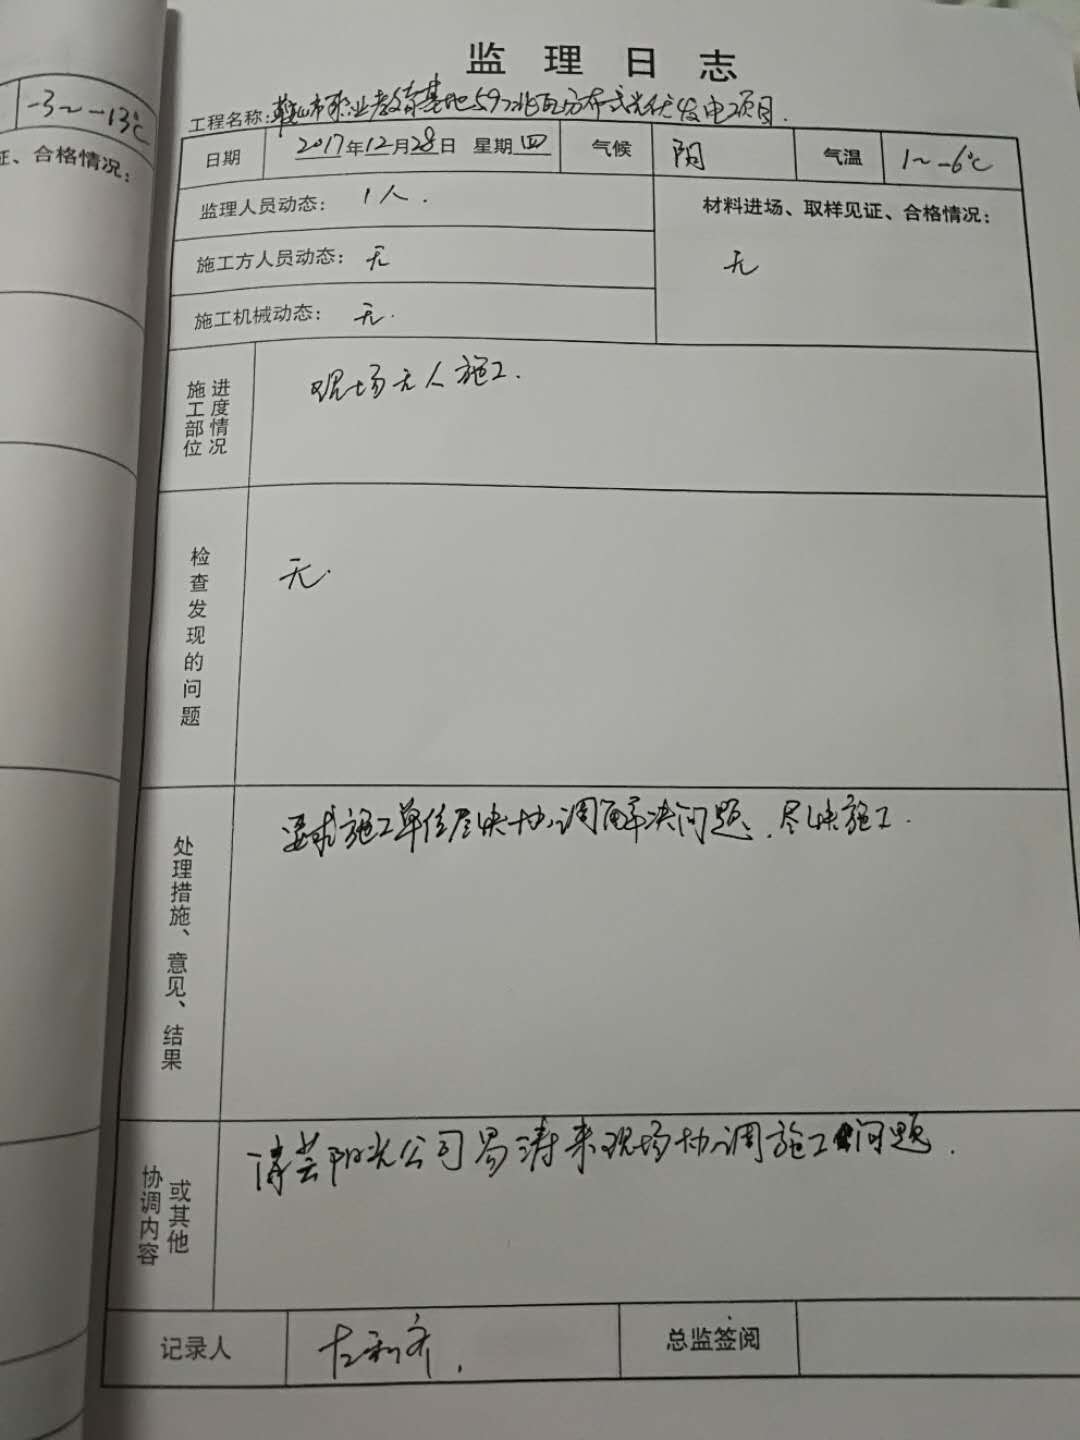 -3~-13℃
证、合格情况：
监理日志
工程名称：鞍山市职业教育基地5.97兆瓦分布式光伏发电项目.
日期 2017年12月28日 星期四 气候 阴 气温 1~-6℃
监理人员动态： 1人.
材料进场、取样见证、合格情况：
施工方人员动态： 无
无
施工机械动态： 无.
施工部位 进度情况
现场无人施工.
检查发现的问题
无.
处理措施、意见、结果
要求施工单位尽快协调解决问题，尽快施工.
协调内容 或其他
清芸阳光公司易涛来现场协调施工问题.
记录人 左利齐. 总监签阅